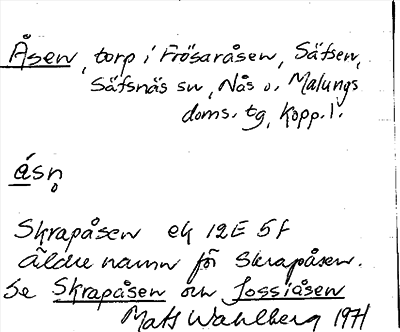 Åsen, torp i Frösaråsen, Säfsen,
Säfsnäs sn, Nås o. Malungs
doms. tg, Kopp. l.
åsn̥
Skrapåsen ek 12E 5f
äldre namn för Skrapåsen.
Se Skrapåsen och Jossiåsen
Mats Wahlberg 1971